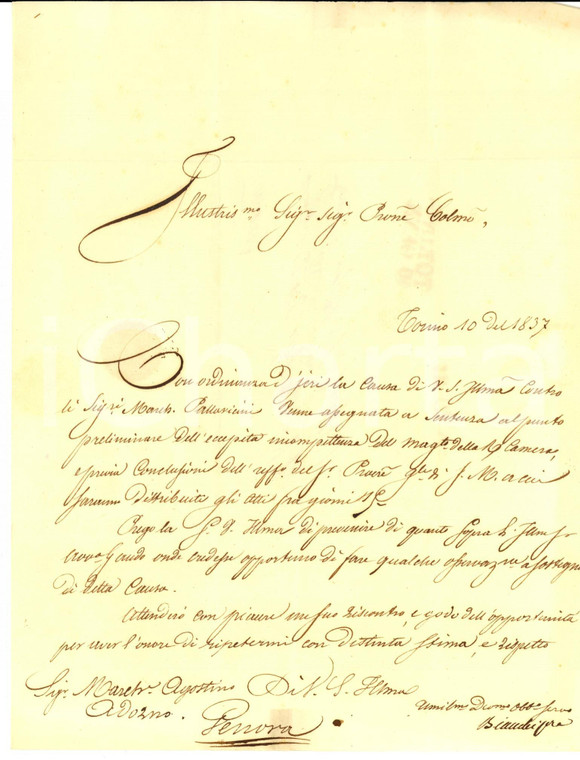 Illustris.mo Sig.r Sig.r Prone Colmo,
Torino 10 del 1837
Con ordinanza d'jeri la Causa di V. S. Illma Contro
li Sig.ri March. Pallavicini venne assegnata a Sentenza sul punto
preliminare dell'eccepita incompettenza dell magto della R Camera,
e previa Conclusioni dell'uffo. del Sr Procre di S. M. a cui
saranno distribuite gli Atti fra giorni 15
Prego la S. V. Illma di prevenire di quanto sopra
Avvo Gaudo onde credesse opportuno di fare qualche osservazne a sostegno
di detta Causa.
Attenderò con piacere un suo riscontro, e godo dell'opportunità
per aver l'onore di rifretermi con distinta stima, e rispetto
Sigr. March. Agostino Di V. S. Illma
Adorno. Umilmo Devmo Obbo Servo
Genova